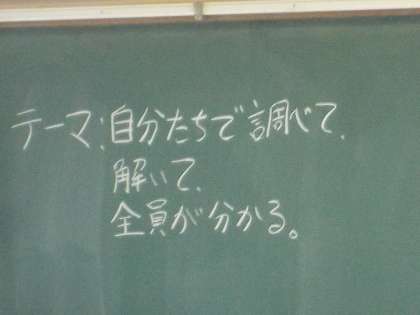 テーマ:自分たちで調べて、
解いて、
全員が分かる。